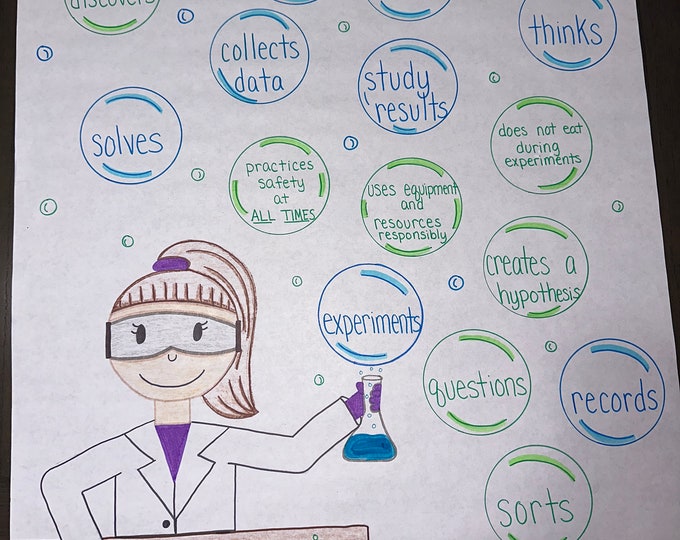 discovers
thinks
collects
data
study
results
solves
does not eat
during
experiments
practices
safety
at
ALL TIMES
uses equipment
and
resources
responsibly
creates a
hypothesis
experiments
questions
records
sorts